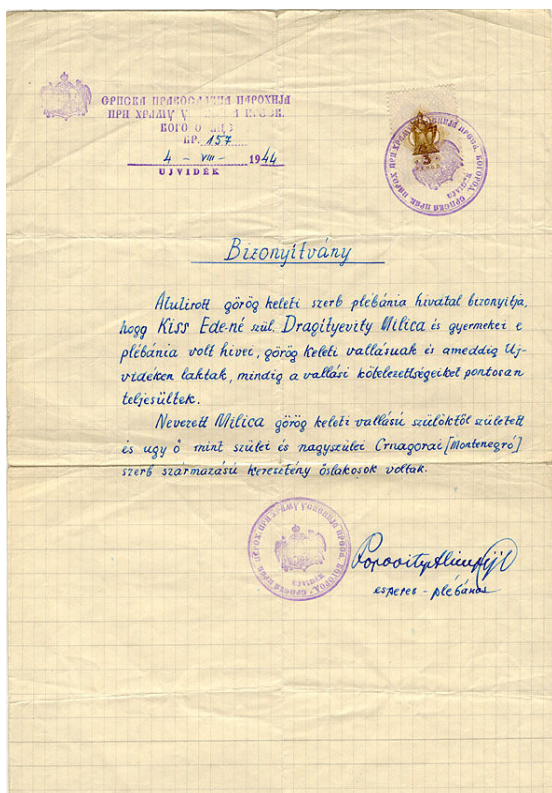 СРПСКА ПРАВОСЛАВНА ПАРОХИЈА
ПРИ ХРАМУ
БР. 157
4 - VIII - 1944
UJVIDÉK
3
Bizonyítvány
Alulirott görög keleti szerb plébánia hivatal bizonyitja,
hogy Kiss Ede-né szül. Dragityevity Milica és gyermekei e
plébánia volt hivei, görög keleti vallásuak és ameddig Uj-
vidéken laktak, mindig a vallási kötelezettségeiket pontosan
teljesültek.
Nevezett Milica görög keleti vallású szülöktől született
és ugy ő mint szülei és nagyszülei Crnagorai [Montenegró]
szerb származású keresztény őslakosok voltak.
esperes - plébános